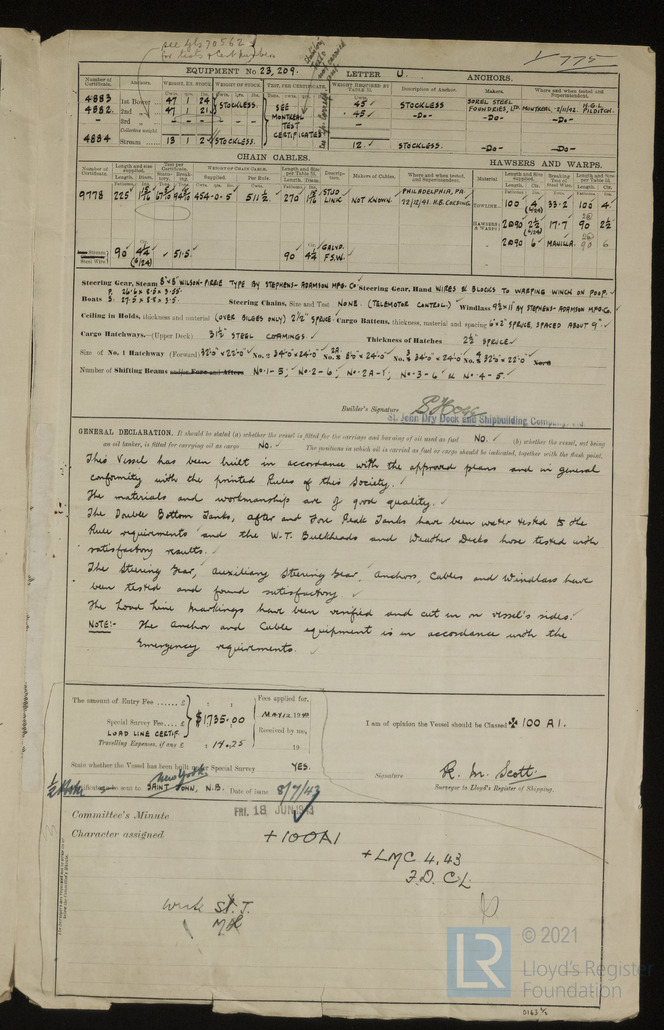 see gls 70562
for tests & Cert numbers
775
EQUIPMENT No 23,209. LETTER U. ANCHORS.
Number of Certificate. Anchors. WEIGHT, EX. STOCK. WEIGHT OF STOCK. TEST, PER CERTIFICATE. WEIGHT REQUIRED BY TABLE 31. Description of Anchor. Makers. Where and when tested and Superintendent.
4883 1st Bower 47 1 24 STOCKLESS. SEE MONTREAL TEST CERTIFICATES 45 STOCKLESS SOREL STEEL FOUNDRIES, LTD. MONTREAL 2/11/42 H.G.L. PILDITCH.
4882 2nd 47 1 21 45 -Do- -Do- -Do-
3rd
Collective weight
4884 Stream 13 1 2 STOCKLESS. 12 STOCKLESS. -Do- -Do-
CHAIN CABLES. HAWSERS AND WARPS.
Number of Certificate. Length and size supplied. Test per Certificate. WEIGHT OF CHAIN CABLE. Length and Size per Table 31. Description. Makers of Cables. Where and when tested, and Superintendent. Material Length and Size supplied. Breaking Test of Steel Wire. Length and Size per Table 31.
Supplied. Per Rule.
9778 225 454-0-5 511½ 270 STUD LINK NOT KNOWN. PHILADELPHIA, PA. 22/12/41. TOWLINE 100 4 (6/24) 33.2 100 4
HAWSERS & WARPS 2@90 2½ (6/24) 17.7 90 2½
Stream Steel Wire 90 4¼ (6/24) 51.5 90 4¼ GALVD. F.S.W. 2@90 6 MANILLA. 90 6
Steering Gear, Steam 8"x8" WILSON-PIRRIE TYPE BY STEPHENS-ADAMSON MFG. CO. Steering Gear, Hand WIRES & BLOCKS TO WARPING WINCH ON POOP.
Boats P. 26.6 x 8.5 x 3.55. S. 27.5 x 8.9 x 3.5. Steering Chains, Size and Test NONE. (TELEMOTOR CONTROL.) Windlass 9½ x 11" BY STEPHENS-ADAMSON MFG. CO.
Ceiling in Holds, thickness and material (OVER BILGES ONLY) 2½" SPRUCE. Cargo Battens, thickness, material and spacing 6"x2" SPRUCE, SPACED ABOUT 9".
Cargo Hatchways.—(Upper Deck) 31½" STEEL COAMINGS. Thickness of Hatches 2½" SPRUCE
Size of No. 1 Hatchway (Forward) 32'0" x 22'0" No. 2 34'0" x 24'0" No. 2A 8'0" x 24'0" No. 3 34'0" x 24'0" No. 4 32'0" x 22'0"
Number of Shifting Beams and/or Fore and Afters No.1-5; No.2-6; No.2A-1; No.3-6 & No.4-5.
Builder's Signature
St. John Dry Dock and Shipbuilding Company, Ltd.
GENERAL DECLARATION. It should be stated (a) whether the vessel is fitted for the carriage and burning of oil used as fuel No. (b) whether the vessel, not being
an oil tanker, is fitted for carrying oil as cargo No. The positions in which oil is carried as fuel or cargo should be indicated, together with the flash point.
This Vessel has been built in accordance with the approved plans and in general
conformity with the printed Rules of this Society.
The materials and workmanship are of good quality.
The Double Bottom Tanks, after and Fore Peak Tanks have been water tested to the
Rule requirements and the W.T. Bulkheads and Weather Decks hose tested with
satisfactory results.
The Steering Gear, Auxiliary Steering Gear, Anchors, Cables and Windlass have
been tested and found satisfactory
The Load Line Markings have been verified and cut in on vessel's sides.
NOTE:- The Anchor and Cable equipment is in accordance with the
Emergency requirements.
The amount of Entry Fee ...... £ $1735.00 Fees applied for,
Special Survey Fee .... £ MAY 12 1943 I am of opinion the Vessel should be Classed ✠ 100 A1.
LOAD LINE CERTIF. Received by me,
Travelling Expenses, if any £ 14.25 19
State whether the Vessel has been built under Special Survey YES. Signature R. M. Scott.
New York Surveyor to Lloyd's Register of Shipping.
Certificate to be sent to SAINT JOHN, N.B. Date of issue 8/7/43
Committee's Minute FRI. 18 JUN 1943
Character assigned +100A1
+LMC 4,43
F.D. CL
Write
© 2021
LR Lloyd's Register
Foundation